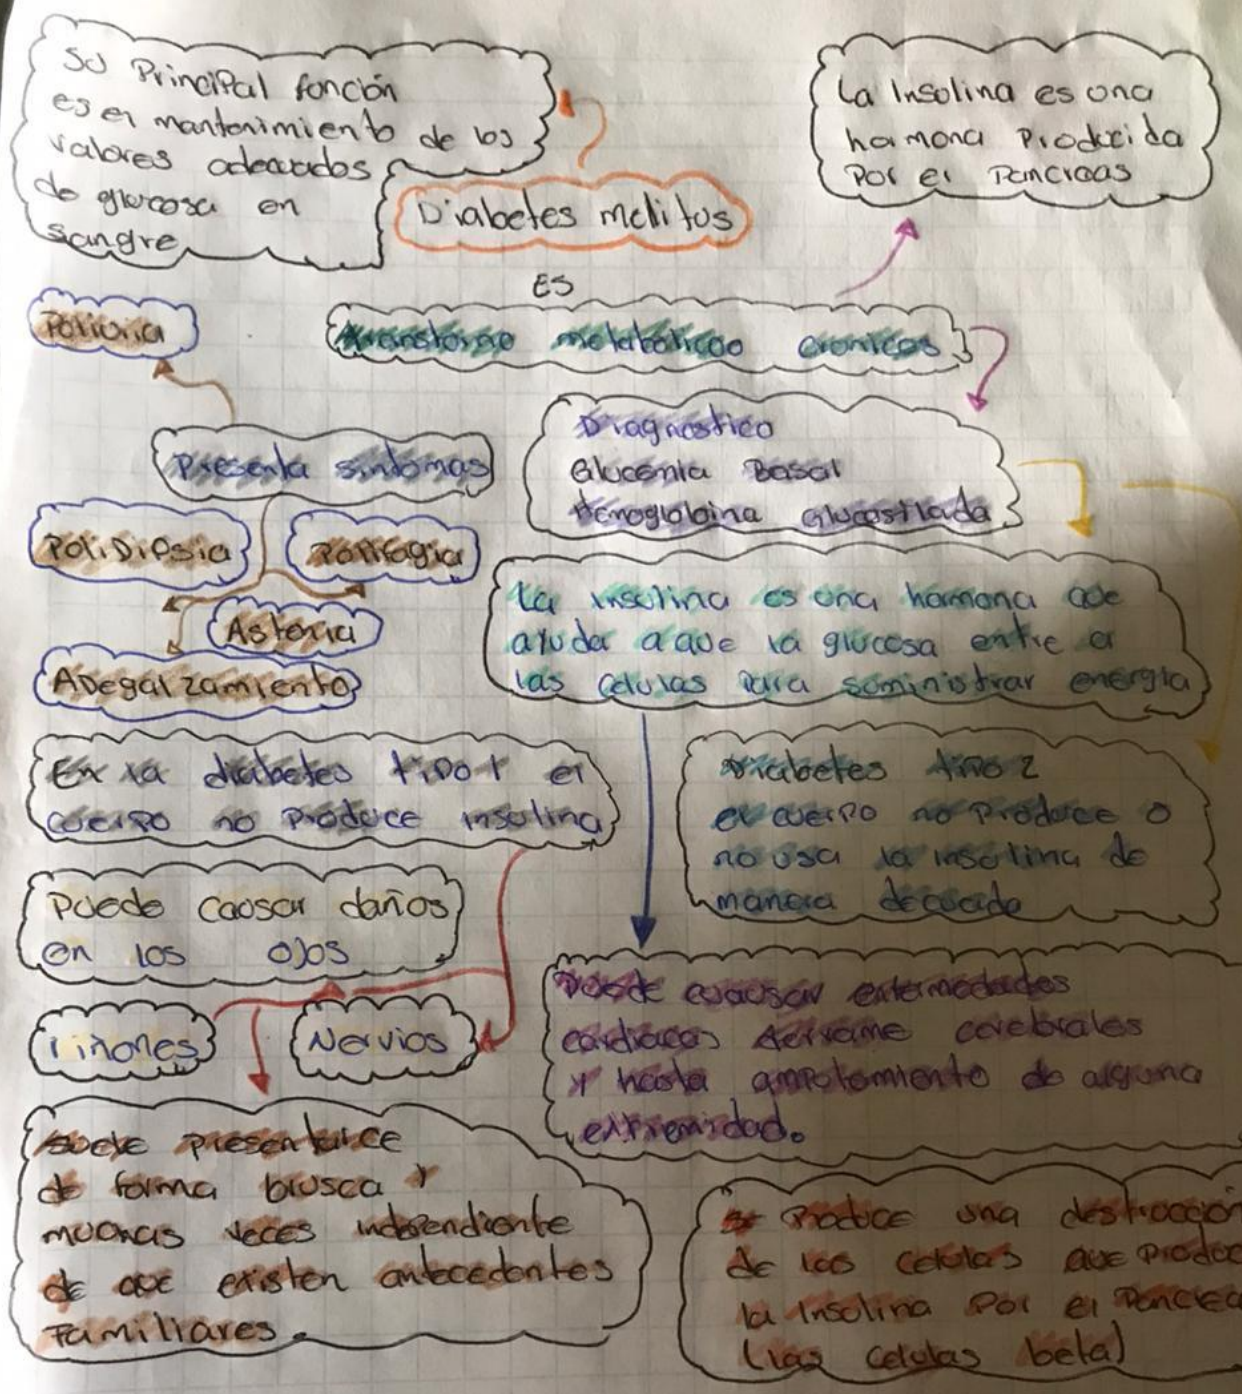 Su Principal función
es el mantenimiento de los
valores adecuados
de glucosa en
sangre
La Insulina es una
hormona Producida
Por el Pancreas
Diabetes melitus
ES
Poliuria
transtorno metabolicoo cronicos
Presenta sintomas
Diagnostico
Glucemia Basal
Hemoglobina Glucosilada
PoliDiPsia
Polifagia
Astenia
ADegalzamiento
La insulina es una hormona que
ayuda a que la glucosa entre a
las celulas para suministrar energia
En la diabetes tipo 1 el
cuerpo no Produce insulina
Diabetes tipo 2
el cuerpo no Produce o
no usa la insulina de
manera decuada
Puede causar daños
en los ojos
riñones
Nervios
Puede cuausar enfermedades
cardiacas derrame cerebrales
y hasta amputamiento de alguna
extremidad.
Suele presentarce
de forma brusca y
muchas veces independiente
de que existen antecedentes
Familiares.
Se Produce una destrucción
de las celulas que Produc
la Insulina Por el Pancrea
(las celulas beta)